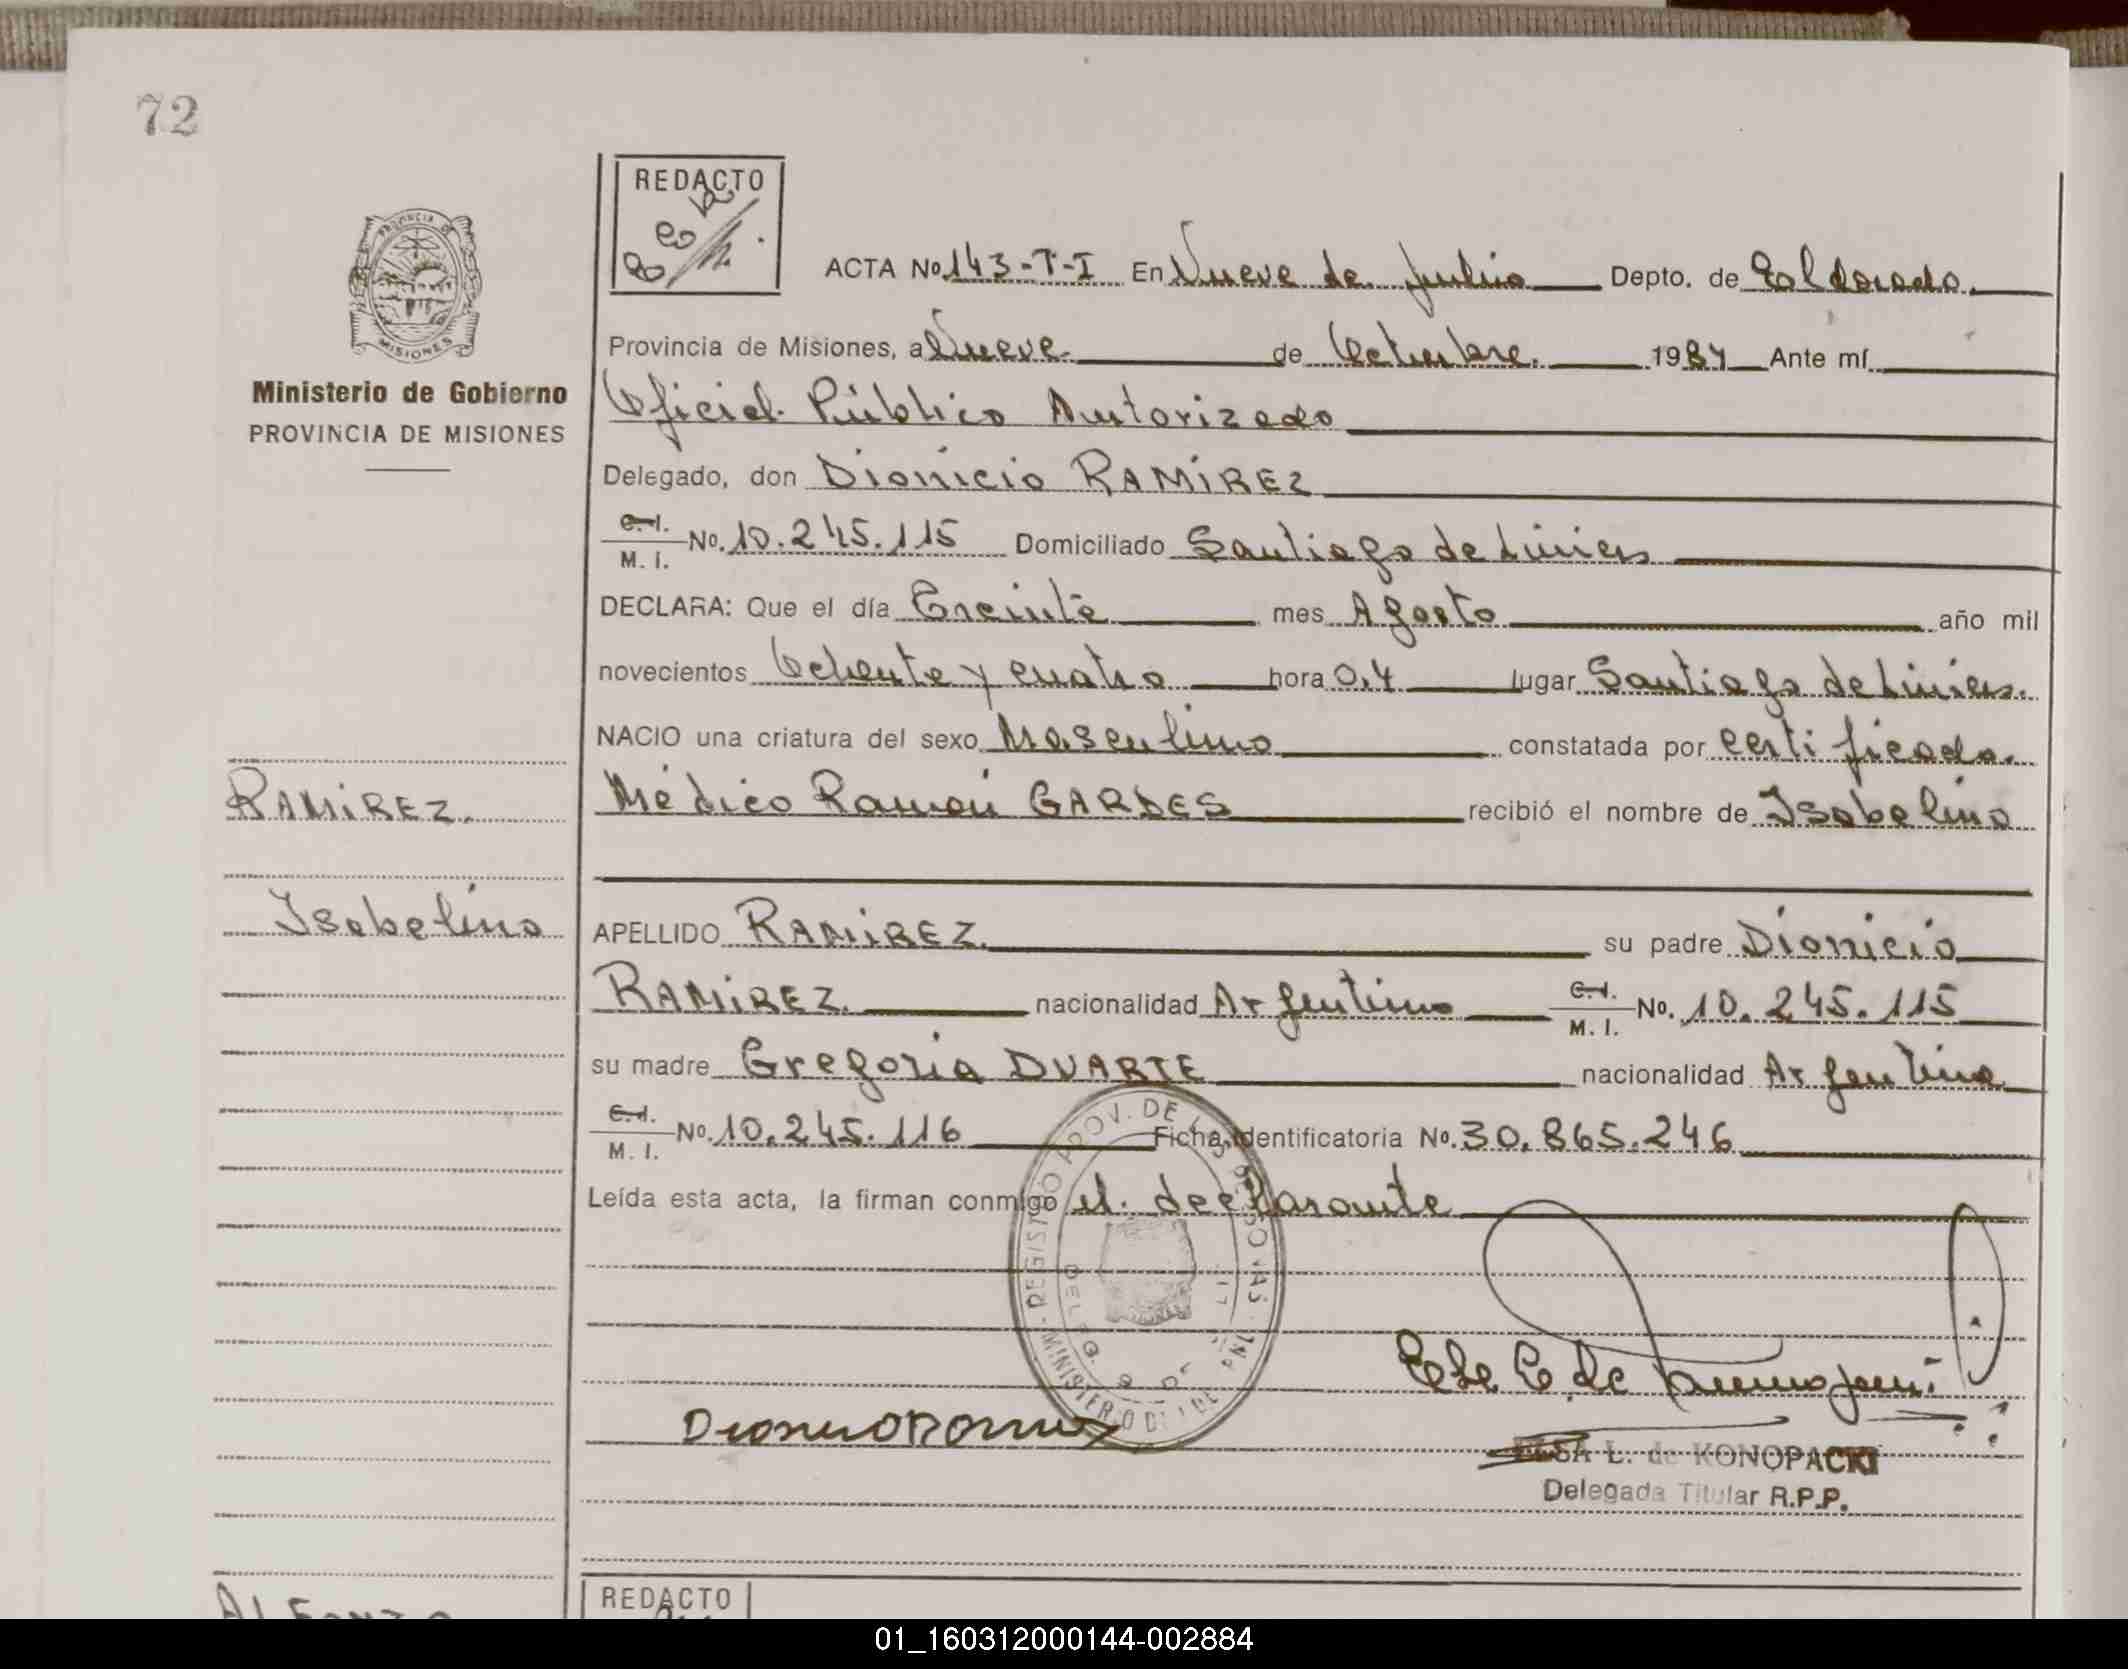 72
REDACTO
PROVINCIA DE
MISIONES
Ministerio de Gobierno
PROVINCIA DE MISIONES
ACTA No. 143-T-I En Nueve de Julio Depto. de Eldorado.
Provincia de Misiones, a Nueve de Octubre. 1984 Ante mí
Oficial Público Autorizado
Delegado, don Dionicio RAMIREZ
C.I. M. I. No. 10.245.115 Domiciliado Santiago de Liniers
DECLARA: Que el día mes Agosto año mil
novecientos Ochenta y cuatro hora 0,4 lugar Santiago de Liniers.
NACIO una criatura del sexo Masculino constatada por certificado.
Médico Ramón GARDES recibió el nombre de Isabelino
RAMIREZ.
Isabelino
APELLIDO RAMIREZ. su padre Dionicio
RAMIREZ. nacionalidad Argentino C.I. M. I. No. 10.245.115
su madre Gregoria DUARTE nacionalidad Argentina
C.I. M. I. No. 10.245.116 Ficha identificatoria No. 30.865.246
Leída esta acta, la firman conmigo el declarante
REGISTRO PROV. DE LAS PERSONAS
MINISTERIO DE
ELSA L. de KONOPACKI
Delegada Titular R.P.P.
REDACTO
01_160312000144-002884